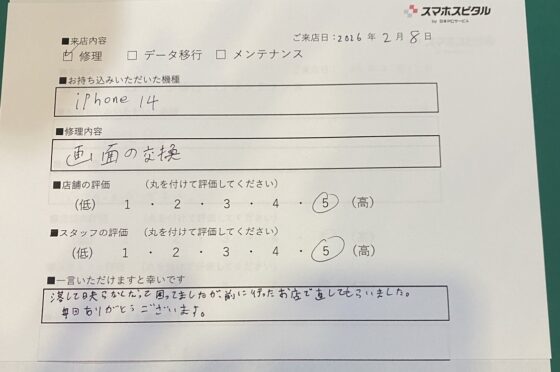 スマホスピタル
by 日本PCサービス
ご来店日：2026年 2月 8日
■来店内容
☑ 修理 □ データ移行 □ メンテナンス
■お持ち込みいただいた機種
iphone 14
■修理内容
画面の交換
■店舗の評価 （丸を付けて評価してください）
（低） 1 ・ 2 ・ 3 ・ 4 ・ 5 （高）
■スタッフの評価 （丸を付けて評価してください）
（低） 1 ・ 2 ・ 3 ・ 4 ・ 5 （高）
■一言いただけますと幸いです
落して映らなくなって困ってましたが、前に行ったお店で直してもらいました。
毎回ありがとうございます。